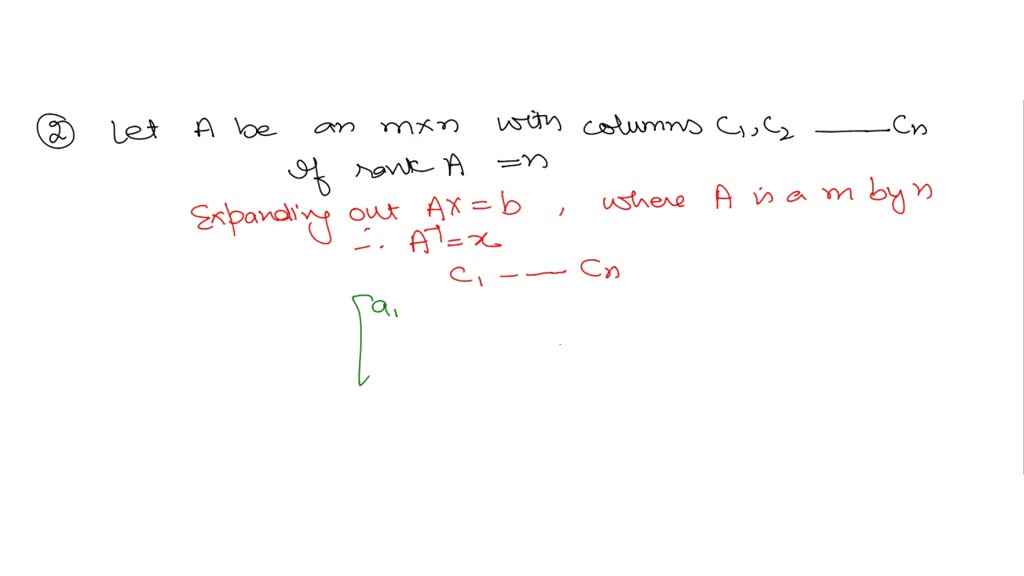 ② Let A be an m×n with columns C₁, C₂ —— Cn
If rank A = n
Expanding out AX = b , where A is a m by n
∴ A⁻¹ = x
C₁ —— Cn
[ a₁